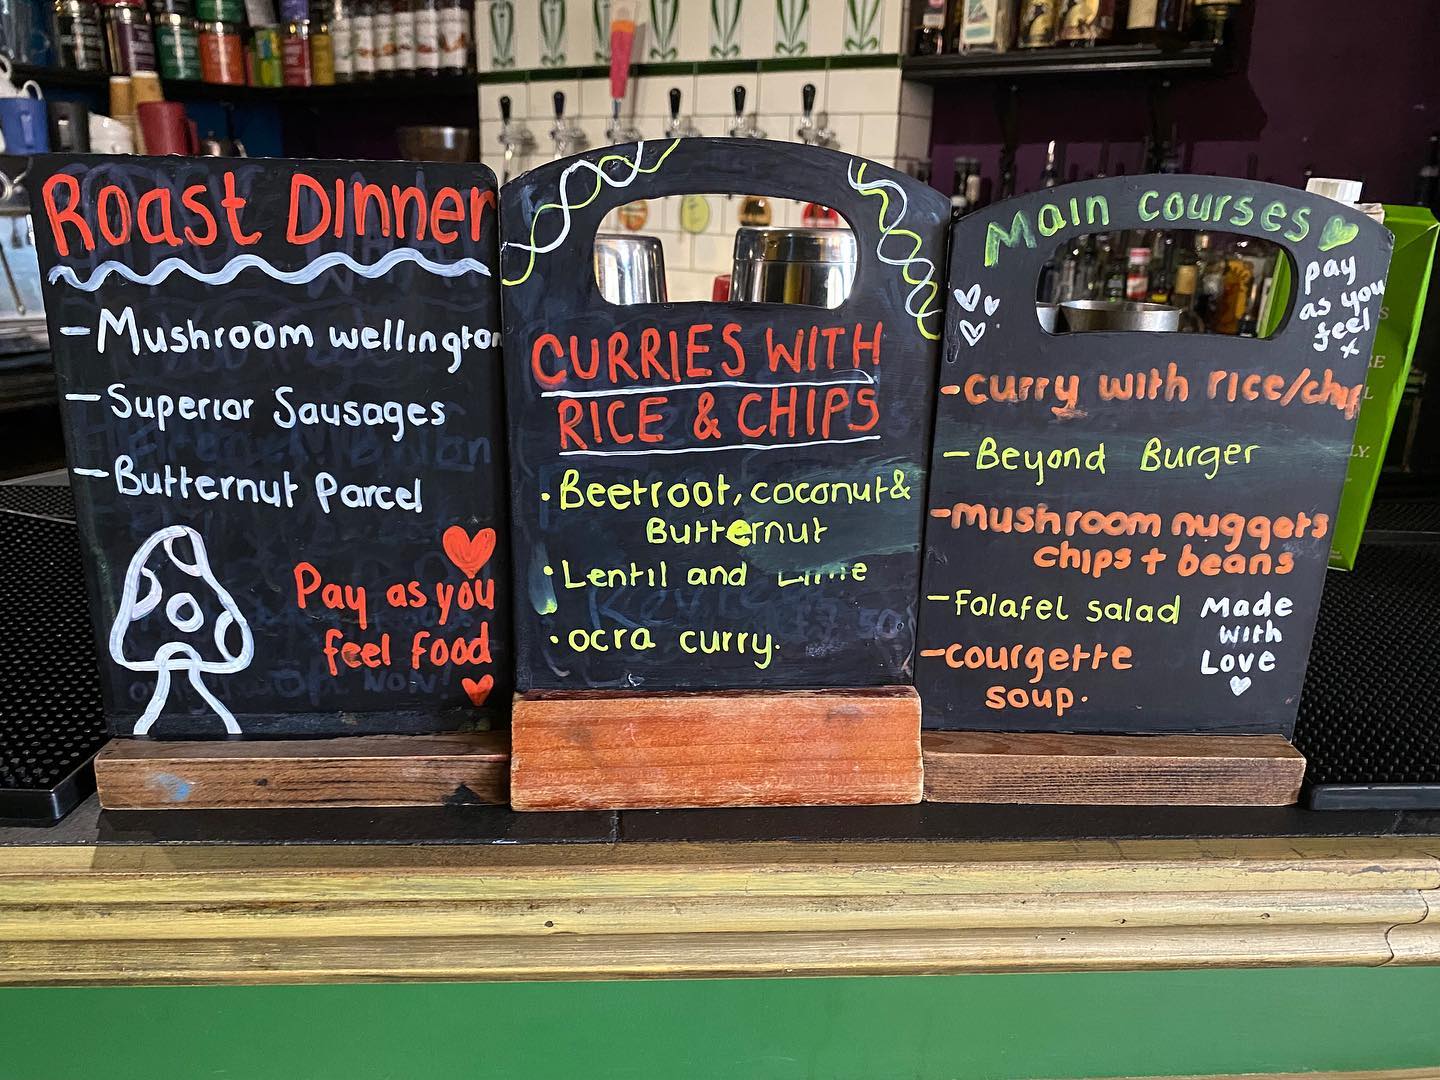 Roast Dinner
- Mushroom wellington
- Superior Sausages
- Butternut Parcel
Pay as you
feel food
CURRIES WITH
RICE & CHIPS
• Beetroot, coconut &
Butternut
• Lentil and Lime
• ocra curry.
Main courses
pay
as you
feel
x
- curry with rice/chips
- Beyond Burger
- mushroom nuggets
chips + beans
- Falafel salad
- courgette
soup.
Made
with
Love